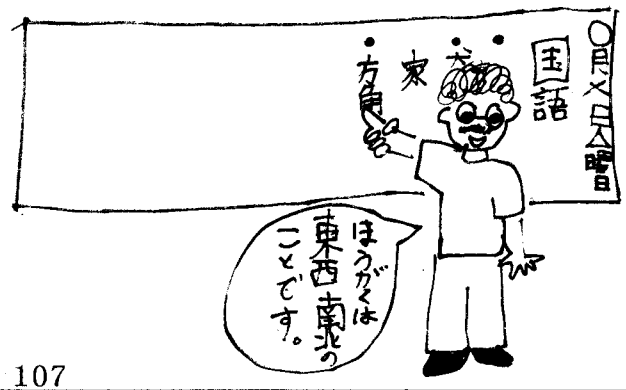 〇月×日△曜日
国語
家
・方角
ほうがくは
東西南北の
ことです。
107